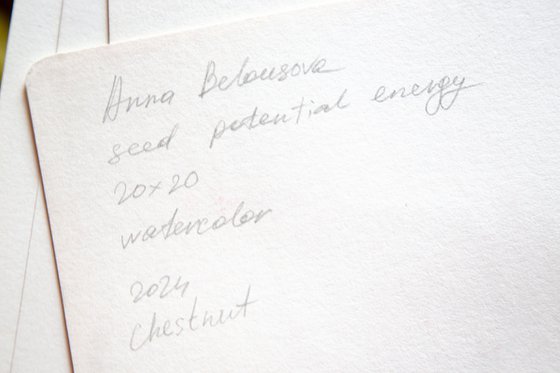 Anna Belousova
seed potential energy
20×20
watercolor
2024
Chestnut